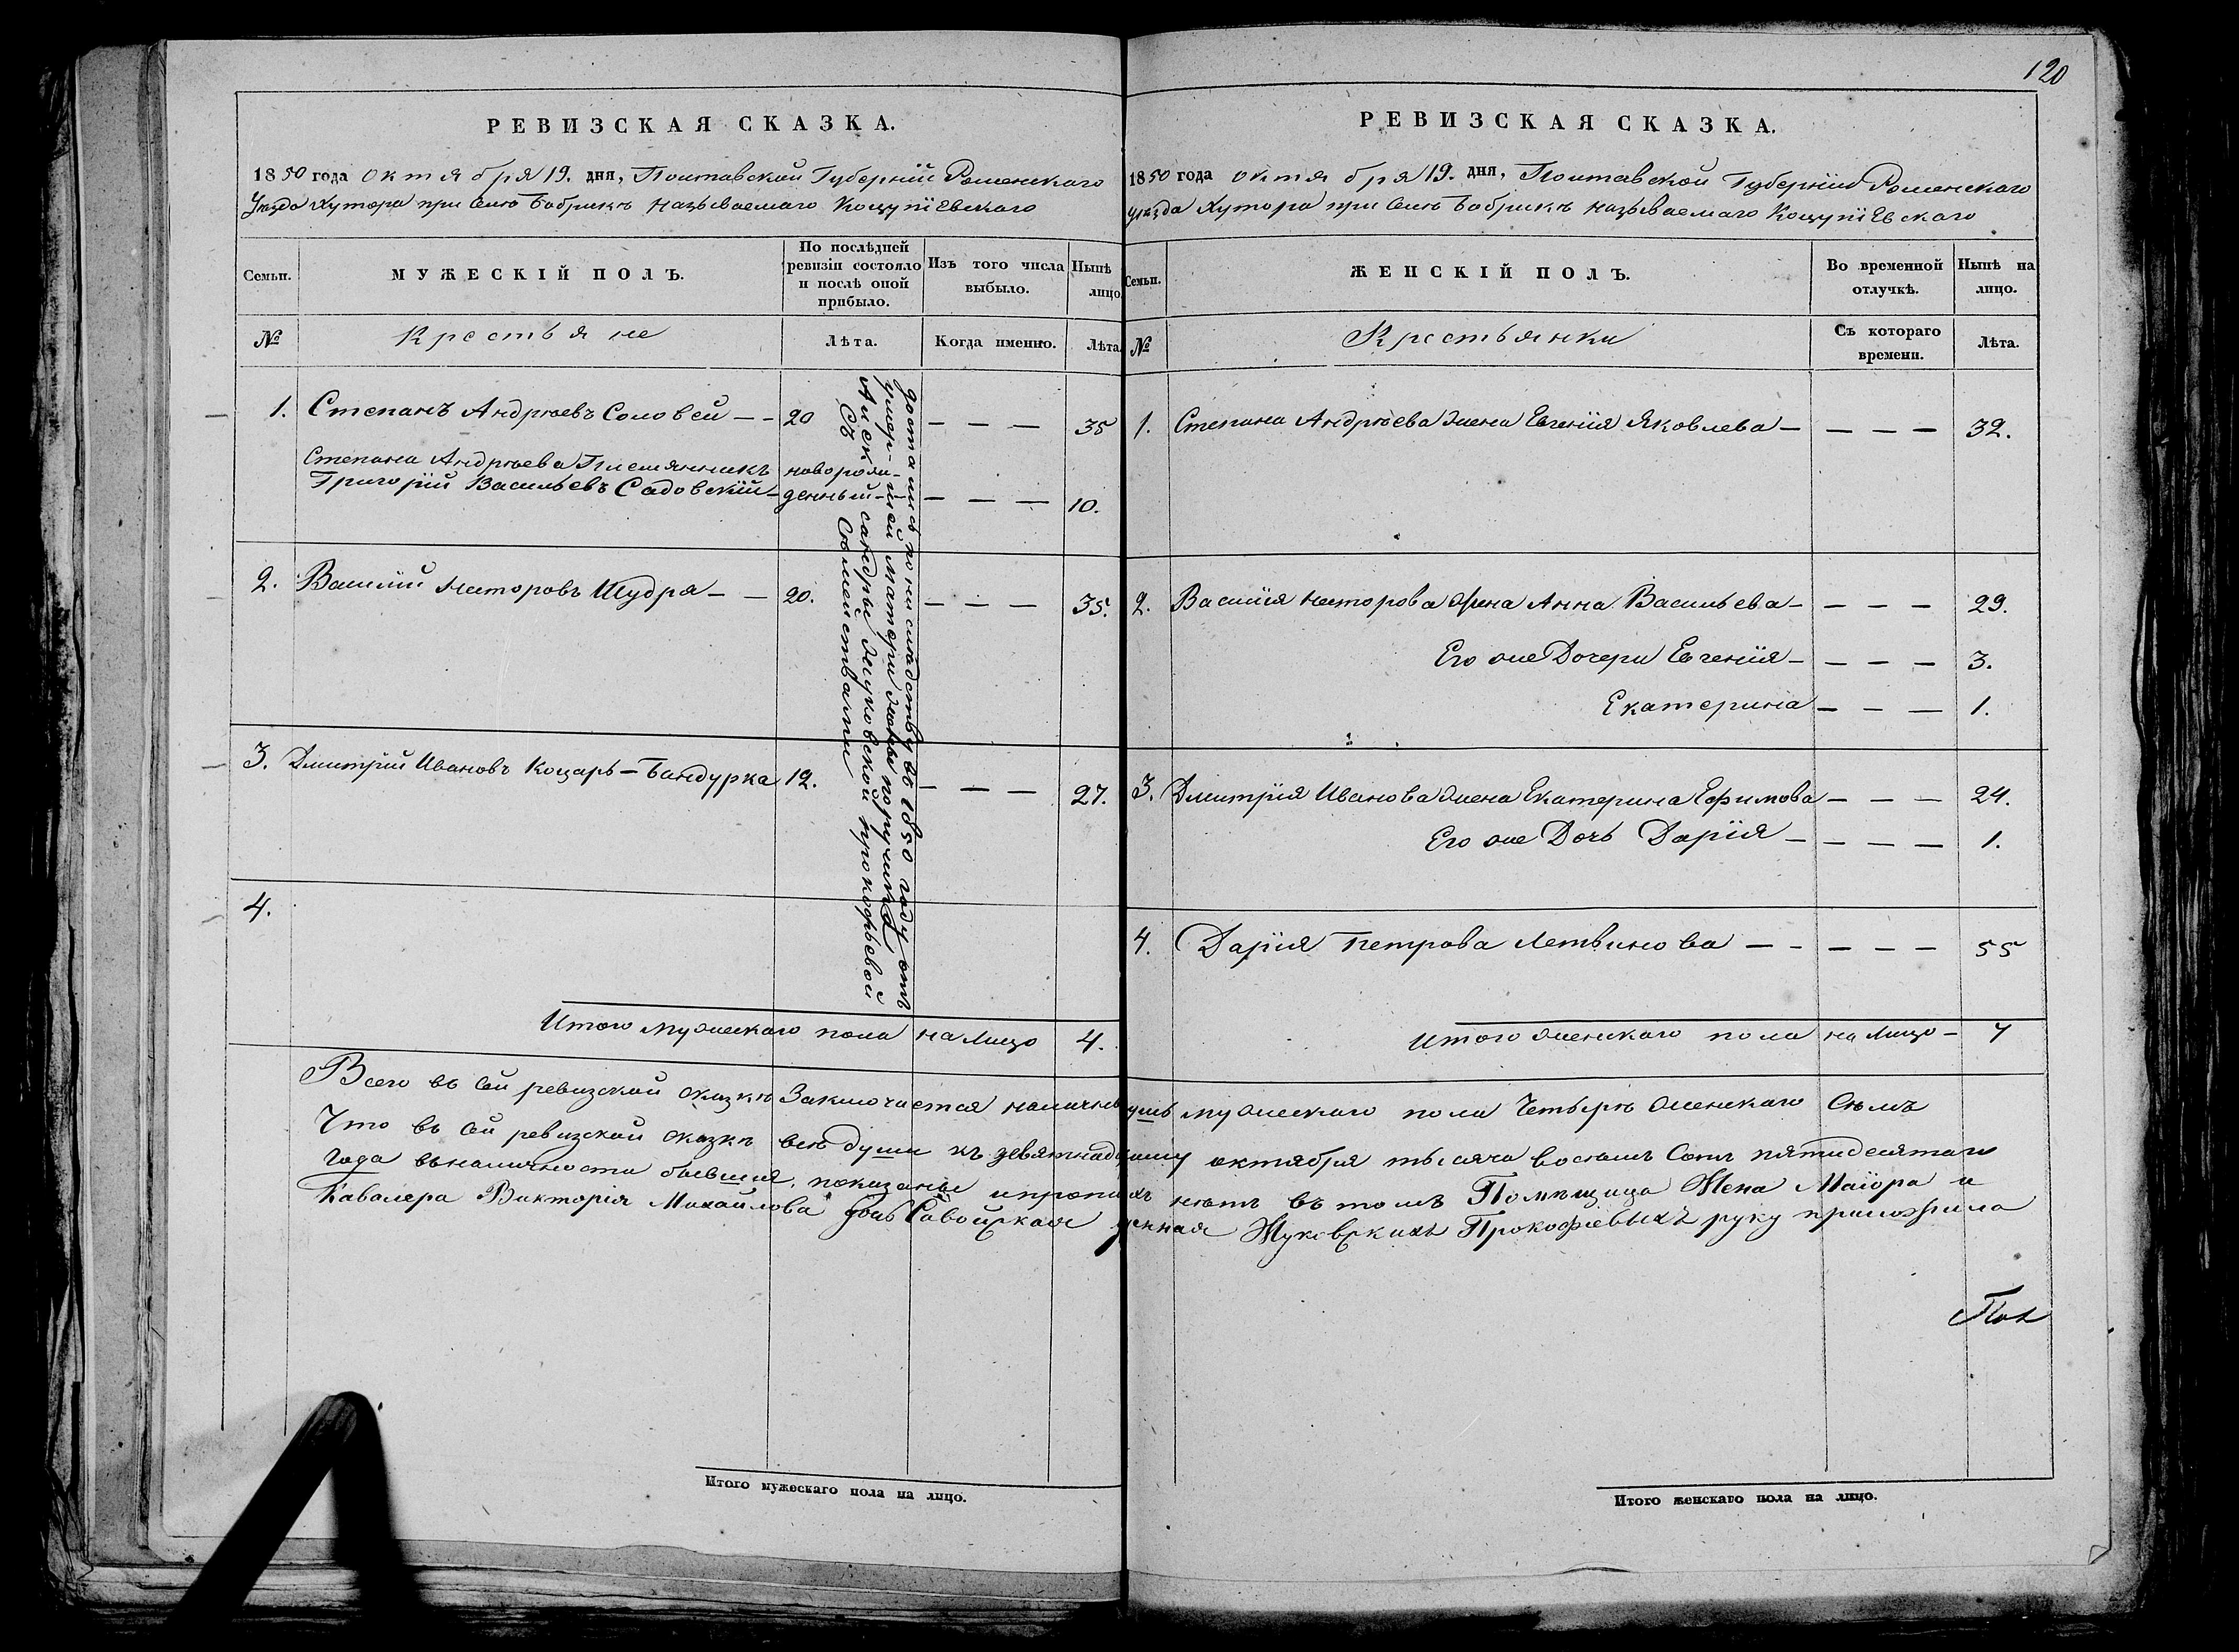 РЕВИЗСКАЯ СКАЗКА.
1850 года октября 19. дня, Полтавской Губерніи Роменскаго
Уезда Хутора при Селѣ Бобрикѣ называемаго Коцупіевскаго
Семьи.
МУЖЕСКІЙ ПОЛЪ.
По послѣдней ревизіи состояло и послѣ оной прибыло.
Изъ того числа выбыло.
Нынѣ лицо
№
Крестьяне
Лѣта.
Когда именно.
Лѣта
1. Степанъ Андреевъ Соловей — — 20 — — — 35
Степана Андреева Племянникъ новорож-
Григорій Васильевъ Садовскій — денный — — — — 10.
2. Василій Несторовъ Шудря — — 20. — — — 35.
3. Дмитрій Ивановъ Коцарь — Бандурка 12. — — — 27.
4.
достались по наслѣдству въ 1850 году отъ
умер- шей матери
Алек- сандры Жуковской Прокофьевой
Съ Сѣмействами
Итого мужескаго пола на лицо 4.
РЕВИЗСКАЯ СКАЗКА.
120
1850 года октября 19. дня, Полтавской Губерніи Роменскаго
уезда Хутора при Селѣ Бобрикѣ называемаго Коцупіевскаго
Семьи.
ЖЕНСКІЙ ПОЛЪ.
Во временной отлучкѣ.
Нынѣ на лицо.
№
Крестьянки
Съ котораго времени.
Лѣта.
1. Степана Андрѣева жена Евгенія Яковлева — — — — 32.
2. Василія Несторова жена Анна Васильева — — — — 29.
Его же Дочери Евгенія — — — — 3.
Екатерина — — — 1.
3. Дмитрія Иванова жена Екатерина Ефимова — — — 24.
Его же Дочь Дарія — — — — 1.
4. Дарія Петрова Летвинова — — — — — 55
Итого женскаго пола на лицо — 7
Всего въ сей ревизской сказкѣ Заключается наличныхъ душъ мужескаго пола Четырѣ женскаго Сѣмъ
Что въ сей ревизской сказкѣ всѣ души къ девятнадцатому октября тысяча восемь Сотъ пятидесятаго
Года въ наличности бывшия, показаны и нѣтъ въ томъ Помѣщица Жена Маіора и
Кавалера Викторія Михайлова дочь Савойская Жуковскихъ Прокофіевыхъ руку приложила
Пол
Итого мужескаго пола на лицо.
Итого женскаго пола на лицо.